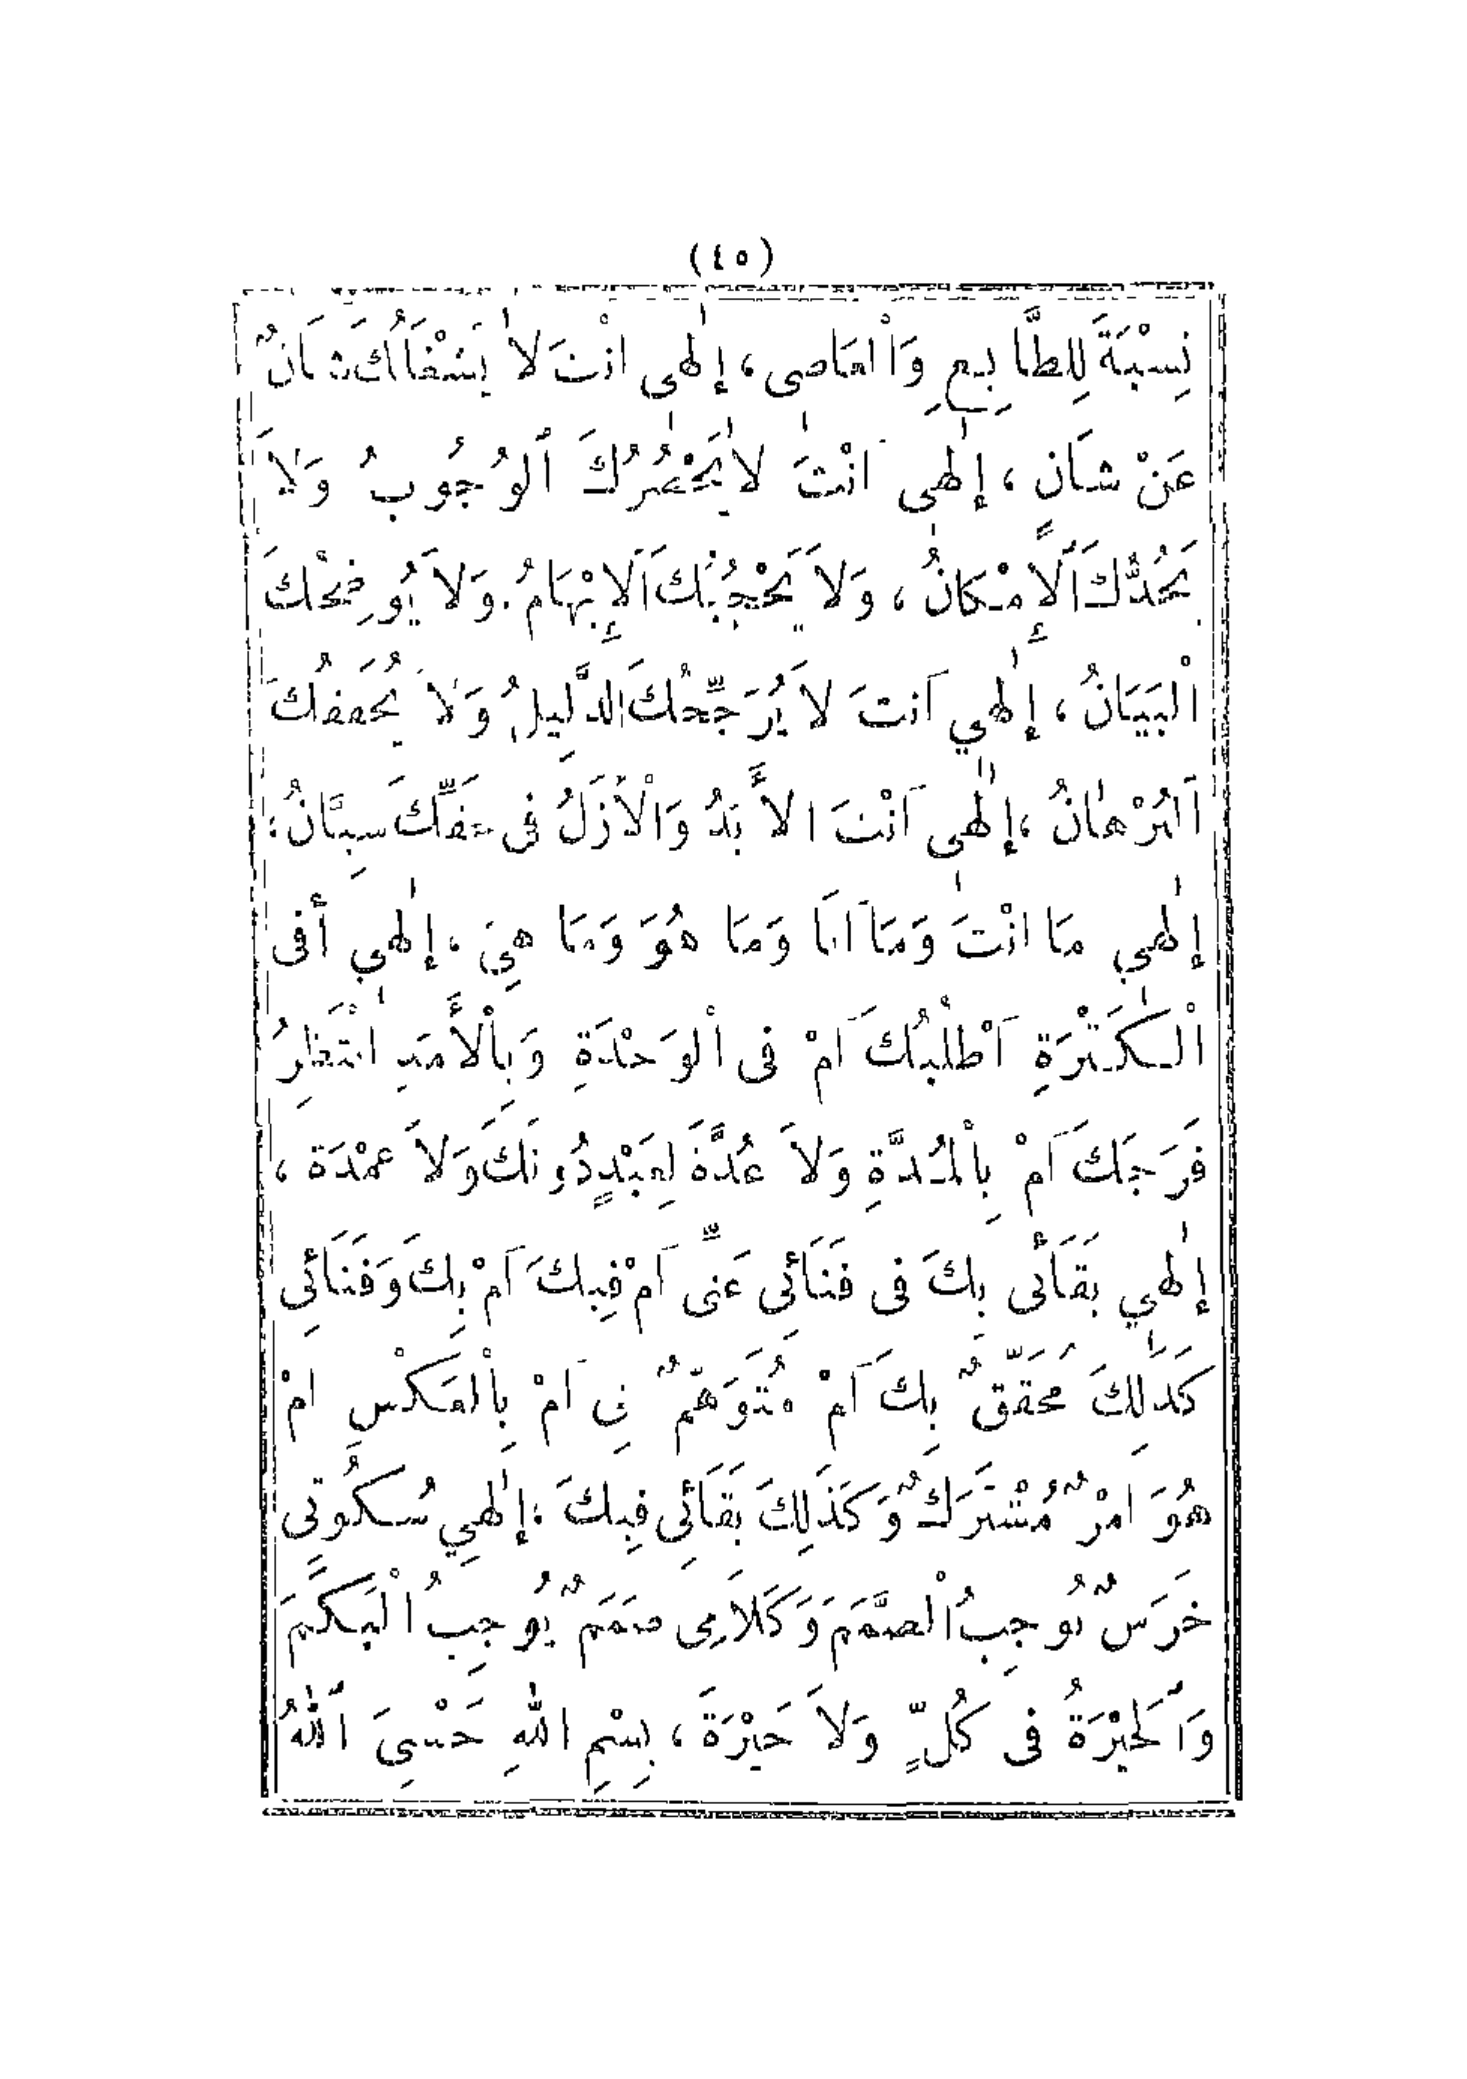 (٤٥)
نِسْبَةَ لِلطَّائِعِ وَالْعَاصِى ، إِلٰهِى اَنْتَ لاَ يَشْغَلُكَ شَانٌ
عَنْ شَانٍ ، إِلٰهِى اَنْتَ لاَ يَحْصُرُكَ اَلْوُجُوبُ وَلاَ
يَحُدُّكَ اَلْإِمْكَانُ ، وَلاَ يَحْجُبُكَ اَلْإِبْهَامُ . وَلاَ يُوضِحُكَ
الْبَيَانُ ، إِلٰهِي اَنتَ لاَ يُرَجِّحُكَ الدَّلِيلُ وَلاَ يُحَقِّقُكَ
اَلْبُرْهَانُ ، إِلٰهِى اَنْتَ الأَبَدُ وَالْأَزَلُ فِى حَقِّكَ سِيَّانُ ؛
إِلٰهِي مَا اَنْتَ وَمَا اَنَا وَمَا هُوَ وَمَا هِيَ ، إِلٰهِي أَفِى
الْكَثْرَةِ اَطْلُبُكَ اَمْ فِى الْوَحْدَةِ وَبِالْأَمَدِ اَنْتَظِرُ
فَرَجَكَ اَمْ بِالْمُدَّةِ وَلاَ عُدَّةَ لِعَبْدٍ دُونَكَ وَلاَ عُمْدَة ،
إِلٰهِي بَقَائِى بِكَ فِى فَنَائِى عَنِّى اَمْ فِيكَ اَمْ بِكَ وَفَنَائِى
كَذٰلِكَ مُحَقَّقٌ بِكَ اَمْ مُتَوَهَّمٌ بِى اَمْ بِالْعَكْسِ اَمْ
هُوَ اَمْرٌ مُشْتَرَكٌ وَكَذَلِكَ بَقَائِى فِيكَ ؛ إِلٰهِي سُكُوتِى
خَرَسٌ يُوجِبُ الْصَّمَمَ وَكَلاَمِى صَمَمٌ يُوجِبُ الْبَكَمَ
وَاَلْحَيْرَةُ فِى كُلٍّ وَلاَ حَيْرَةَ ، بِسْمِ اللهِ حَسْبِىَ اَللهُ